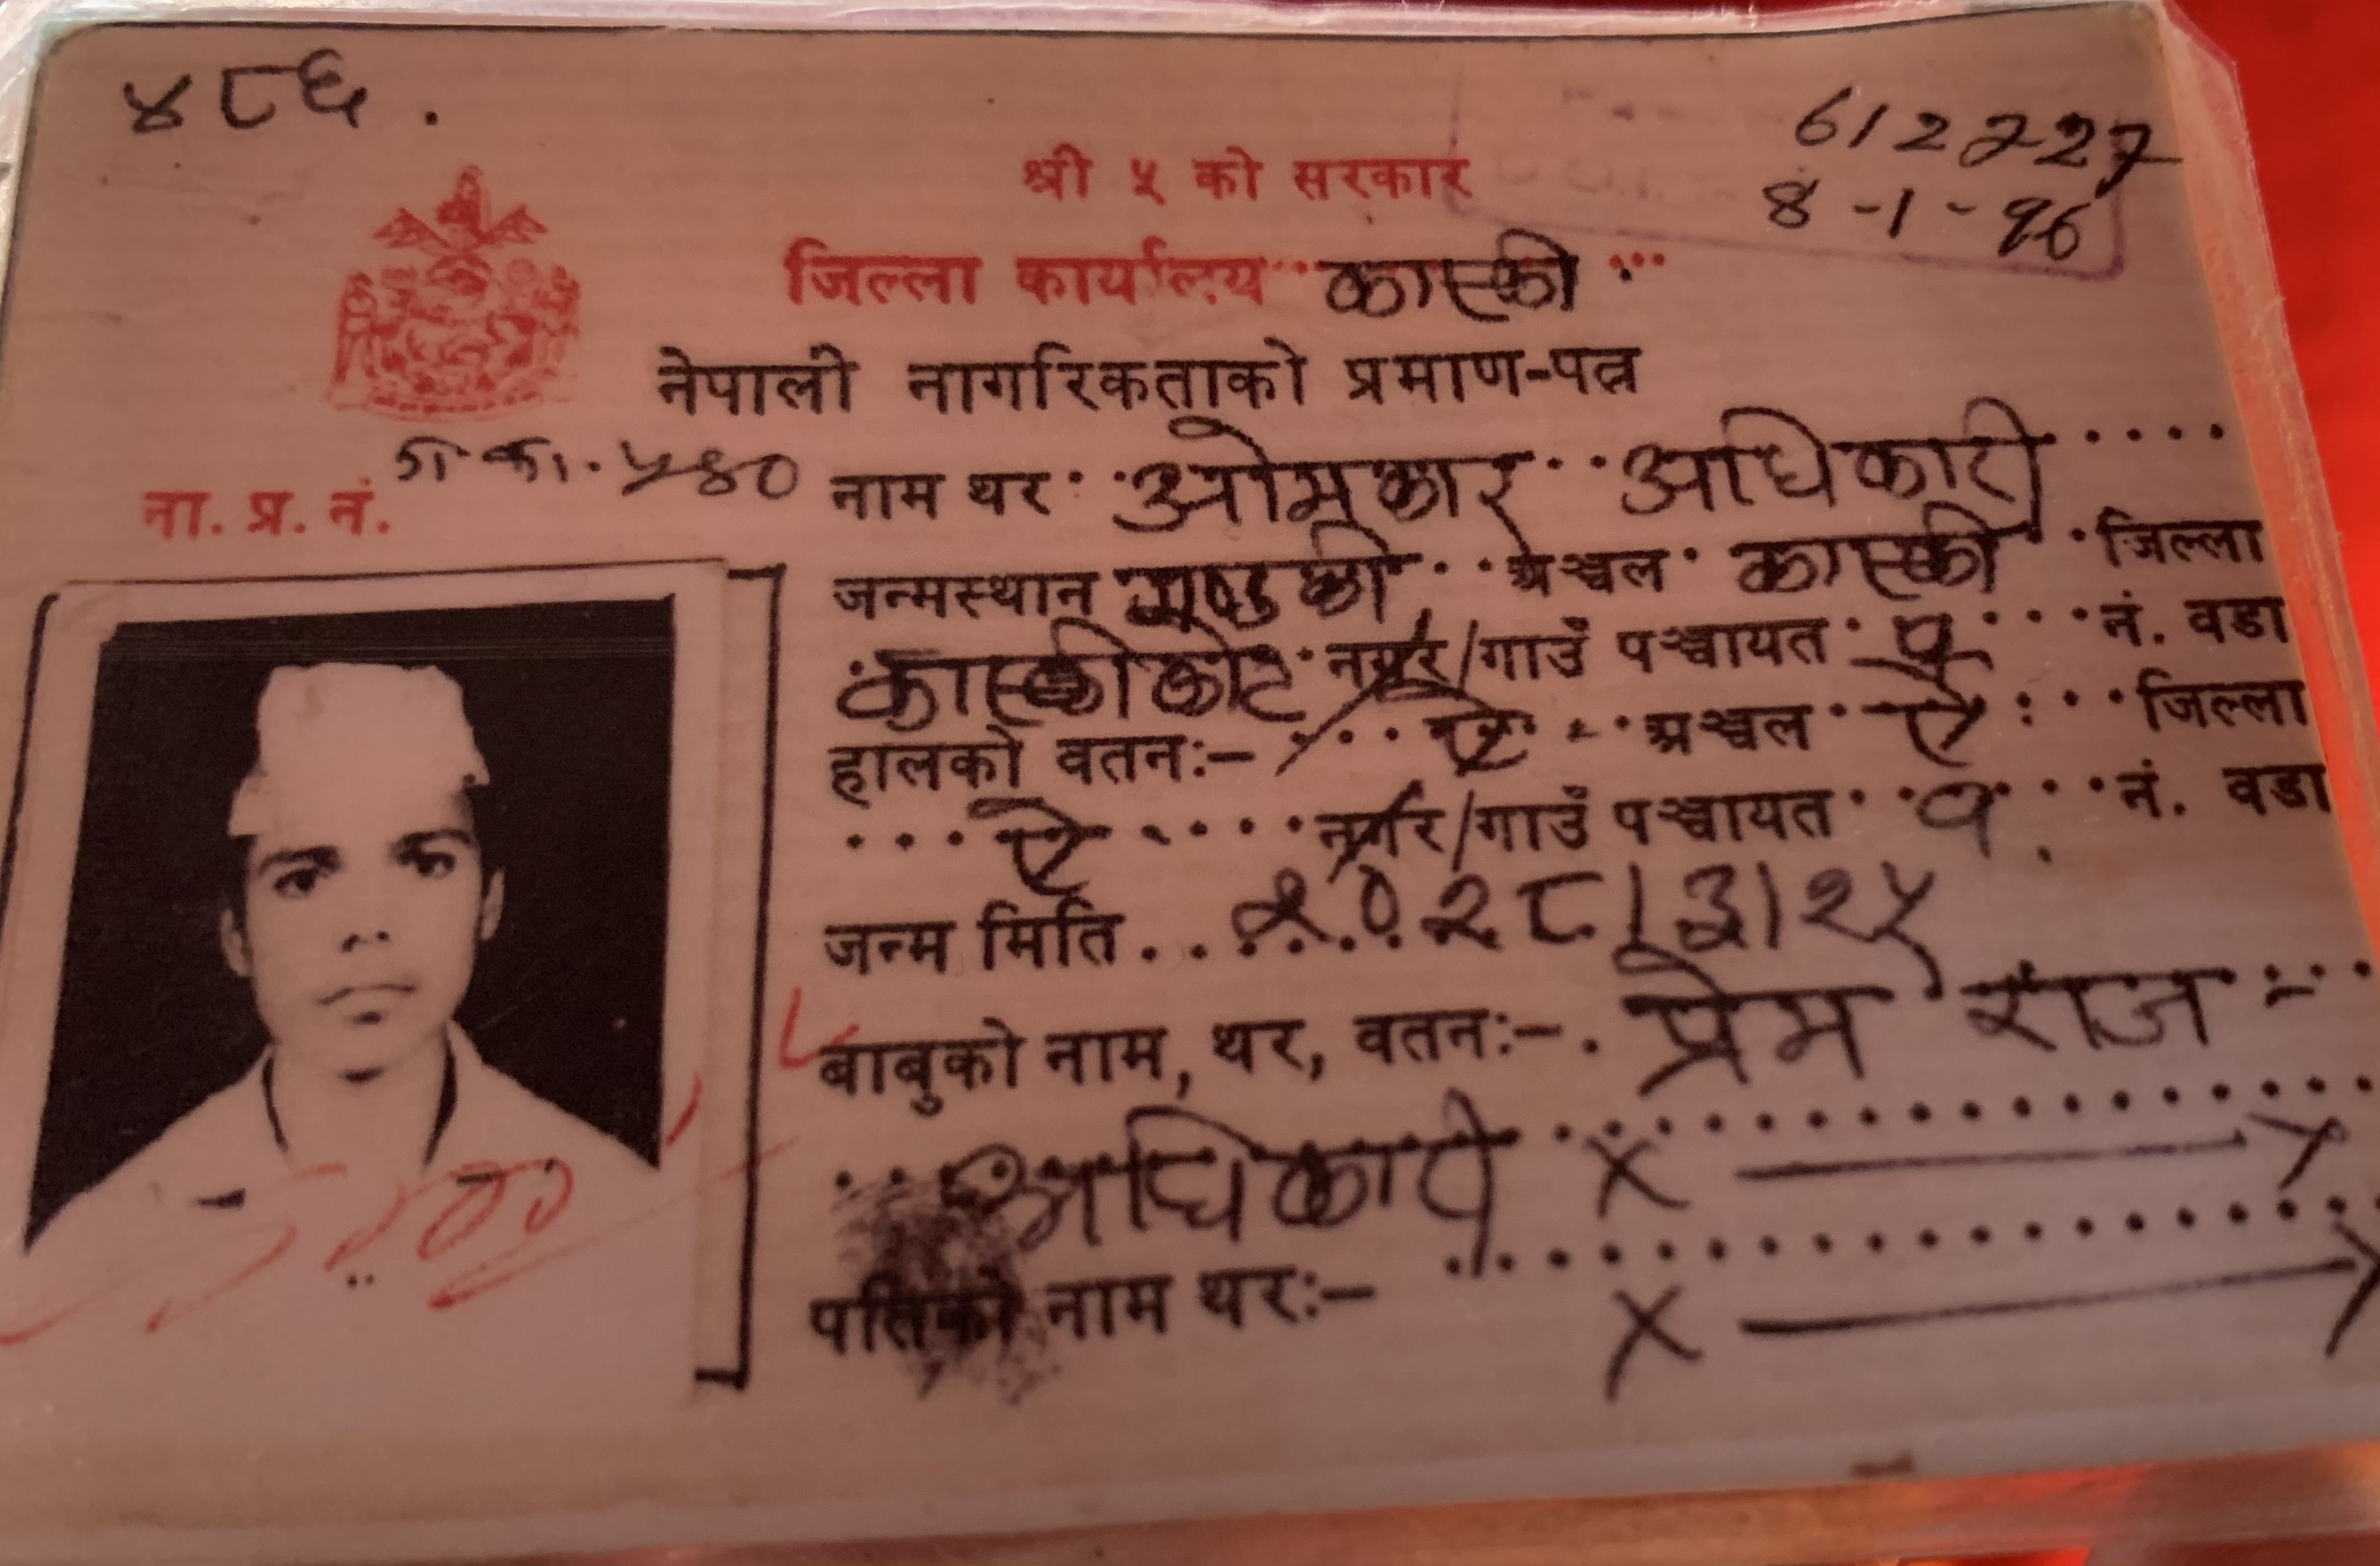 ४८६.
612727
8-1-96
श्री ५ को सरकार
जिल्ला कार्यालय कास्की
नेपाली नागरिकताको प्रमाण-पत्र
ना. प्र. नं. का. ५४०
नाम थर ओमकार अधिकारी
जन्मस्थान गण्डकी अञ्चल कास्की जिल्ला
कास्कीकोट नगर/गाउँ पञ्चायत १ नं. वडा
हालको वतनः- ऐ अञ्चल ऐ जिल्ला
ऐ नगर/गाउँ पञ्चायत १ नं. वडा
जन्म मिति २०२८।३।२५
बाबुको नाम, थर, वतनः- प्रेम राज
अधिकारी x — x
पतिको नाम थरः- x — x